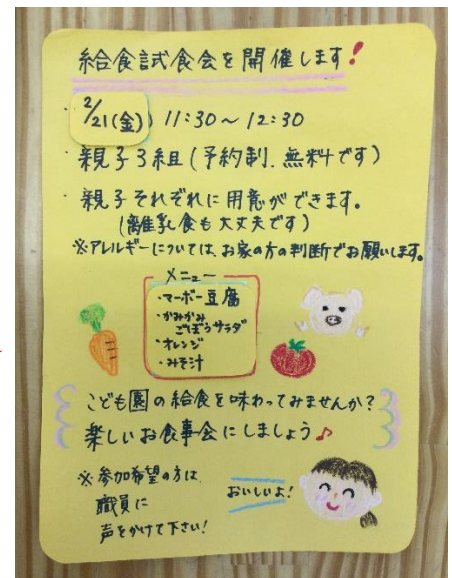 給食試食会を開催します!
・2/21(金) 11:30〜12:30
・親子3組(予約制.無料です)
・親子それぞれに用意ができます。
(離乳食も大丈夫です)
※アレルギーについては、お家の方の判断でお願いします。
メニュー
・マーボー豆腐
・かみかみ
ごぼうサラダ
・オレンジ
・みそ汁
こども園の給食を味わってみませんか?
楽しいお食事会にしましょう♪
※参加希望の方は
職員に
声をかけて下さい!
おいしいよ!